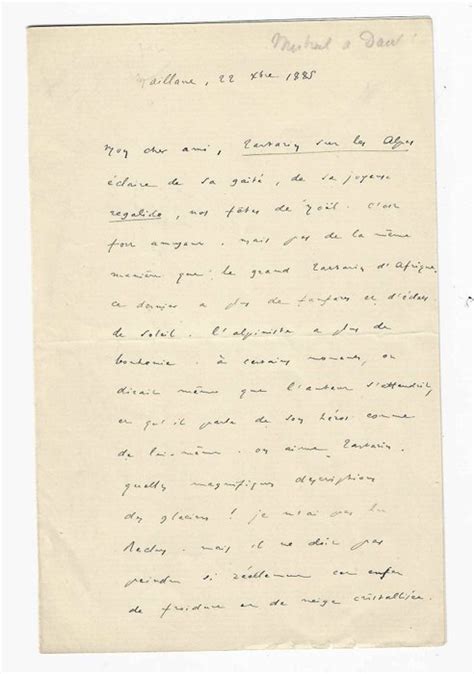 Mistral à Daud
Maillane, 22 Xbre 1885
Mon cher ami, Tartarin sur les Alpes
éclaire de sa gaîté, de sa joyeuse
regalido, nos fêtes de Noël. C'est
fort amusant. mais pas de la même
manière que le grand Tartarin d'Afrique.
ce dernier a plus de fanfare et d'éclats
de soleil. l'alpiniste a plus de
bonhomie. à certains moments, on
dirait même que l'auteur s'attendrit,
et qu'il parle de son héros comme
de lui-même. on aime Tartarin.
quelles magnifiques descriptions
des glaciers ! je n'ai pas lu
Reclus. mais il ne doit pas
peindre si réellement cet enfer
de froidure et de neige cristallisée.